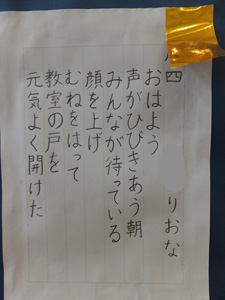 四 りおな
おはよう
声がひびきあう朝
みんなが待っている
顔を上げ
むねをはって
教室の戸を
元気よく開けた